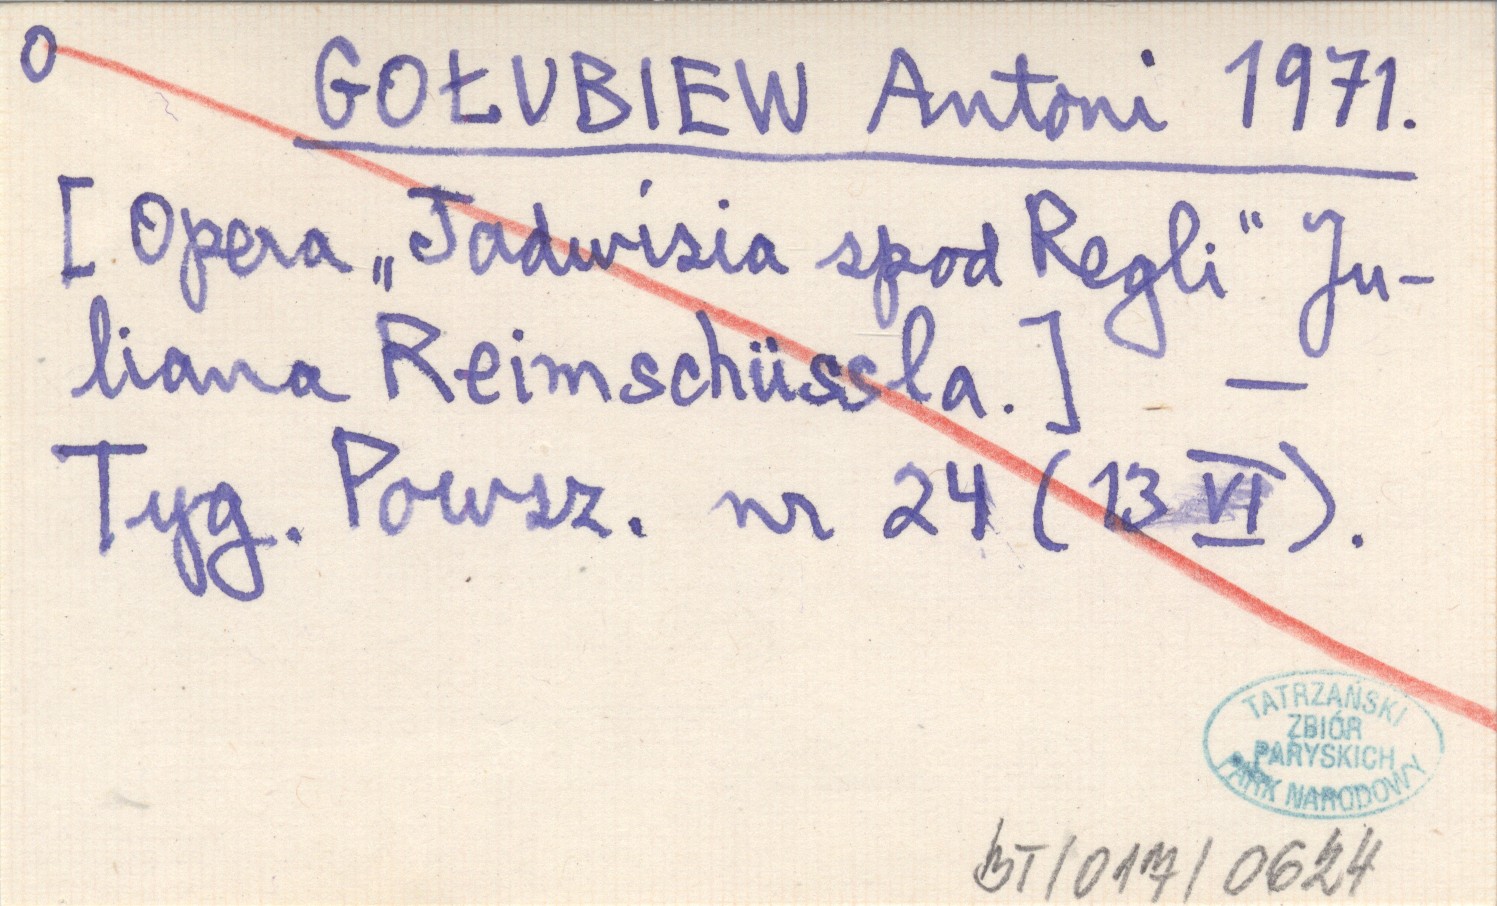 O GOŁUBIEW Antoni 1971.
[Opera „Jadwisia spod Regli" Ju-
liana Reimschüssla.] —
Tyg. Powsz. nr 24 (13 VI).
TATRZAŃSKI
ZBIÓR
PARYSKICH
PARK NARODOWY
BT/017/0624